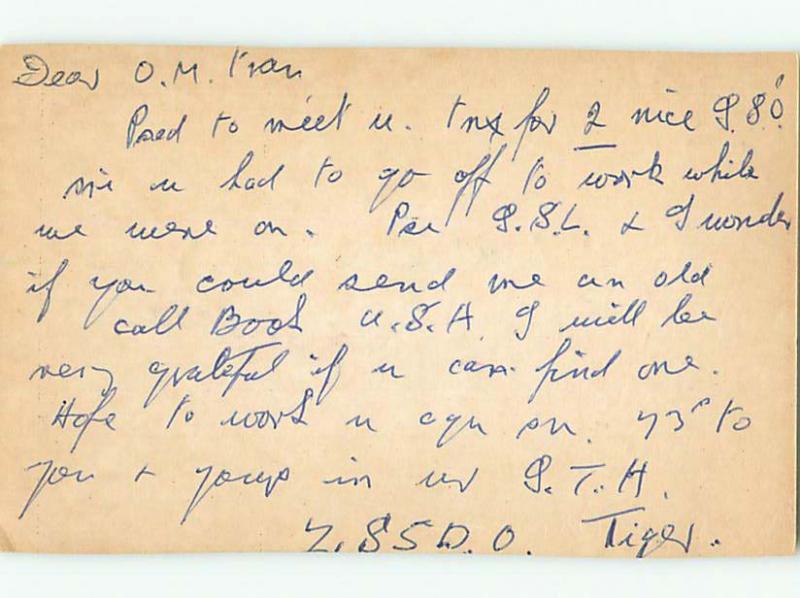 Dear O.M. Fran
Psed to meet u. tnx for 2 nice Q.S.O.
sri u had to go off to work while
we were on. Pse Q.S.L. & I wonder
if you could send me an old
call Book U.S.A. I will be
very grateful if u can find one.
Hope to work u agn sn. 73s to
you & yours in ur Q.T.H.
Z.S5D.O. Tiger.